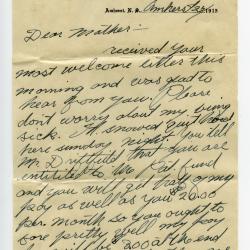 Amherst, N. S. Amherst 1915
Dear Mother:-
received your
most welcome letter this
morning and was glad to
hear from you. Please
dont worry about my being
sick. It snowed quite hard
here sunday night. You tell
Mr. that you are
entitled to the Pat fund
and you will get half of my
pay as well as your $20.00
per month so you ought to
save pretty well my pay
will be $200 at the end